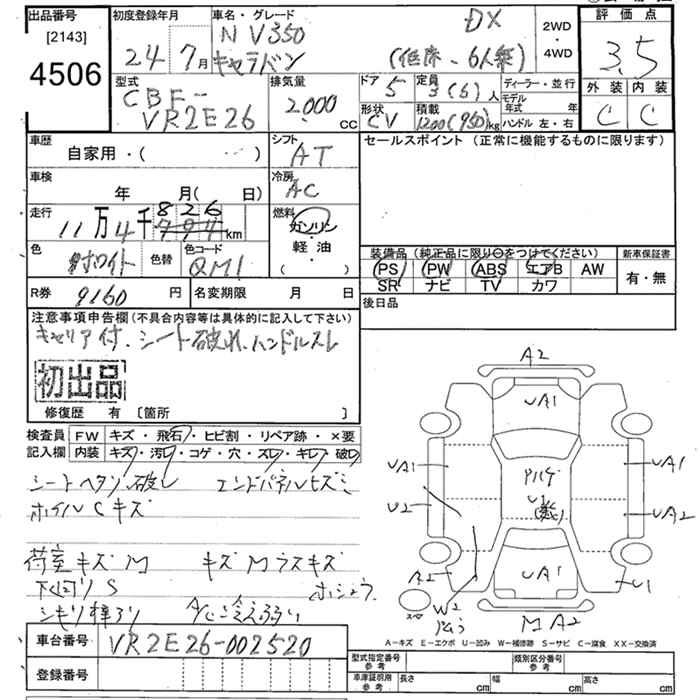 出品番号
[2143]
4506
初度登録年月
24 7月
車名・グレード
NV350
キャラバン
DX
(低床・6人乗)
2WD
・
4WD
評価点
3.5
外装 内装
C C
型式
CBF-
VR2E26
排気量
2,000 cc
ドア
5
定員
3(6)人
形状
CV
積載
1200(950)kg
ディーラー・並行
モデル年式 年
ハンドル 左・右
車歴
自家用・( )
シフト
AT
セールスポイント (正常に機能するものに限ります)
車検
年 月( 日)
冷房
AC
走行
11万4千826km
燃料
ガソリン
・
軽・油
( )
色
ホワイト
色替
色コード
QM1
装備品 (純正品に限り○をつけてください)
PS PW ABS エアB AW
SR ナビ TV カワ
新車保証書
有・無
R券
9160 円
名変期限 月 日
後日品
注意事項申告欄 (不具合内容等は具体的に記入して下さい)
キャリア付、シート破れ、ハンドルスレ
初出品
修復歴 有 [箇所 ]
検査員
記入欄
FW キズ・飛石・ヒビ割・リペア跡・×要
内装 キズ・汚れ・コゲ・穴・スレ・キレ・破れ
シートヘタリ、破レ エンドパネルヒズミ
ホイルCキズ
荷室キズM キズMラスキズ
下回りS
A/C冷え弱い
A2
UA1
UA1
UA1
U2
UA2
UA1
A2
U1
W2
M A2
スペア
A-キズ E-エクボ U-凹み W-補修跡 S-サビ C-腐食 XX-交換済
車台番号
VR2E26-002520
登録番号
型式指定番号
参考
類別区分番号
参考
車庫証明用
参考
長さ cm
幅 cm
高さ cm